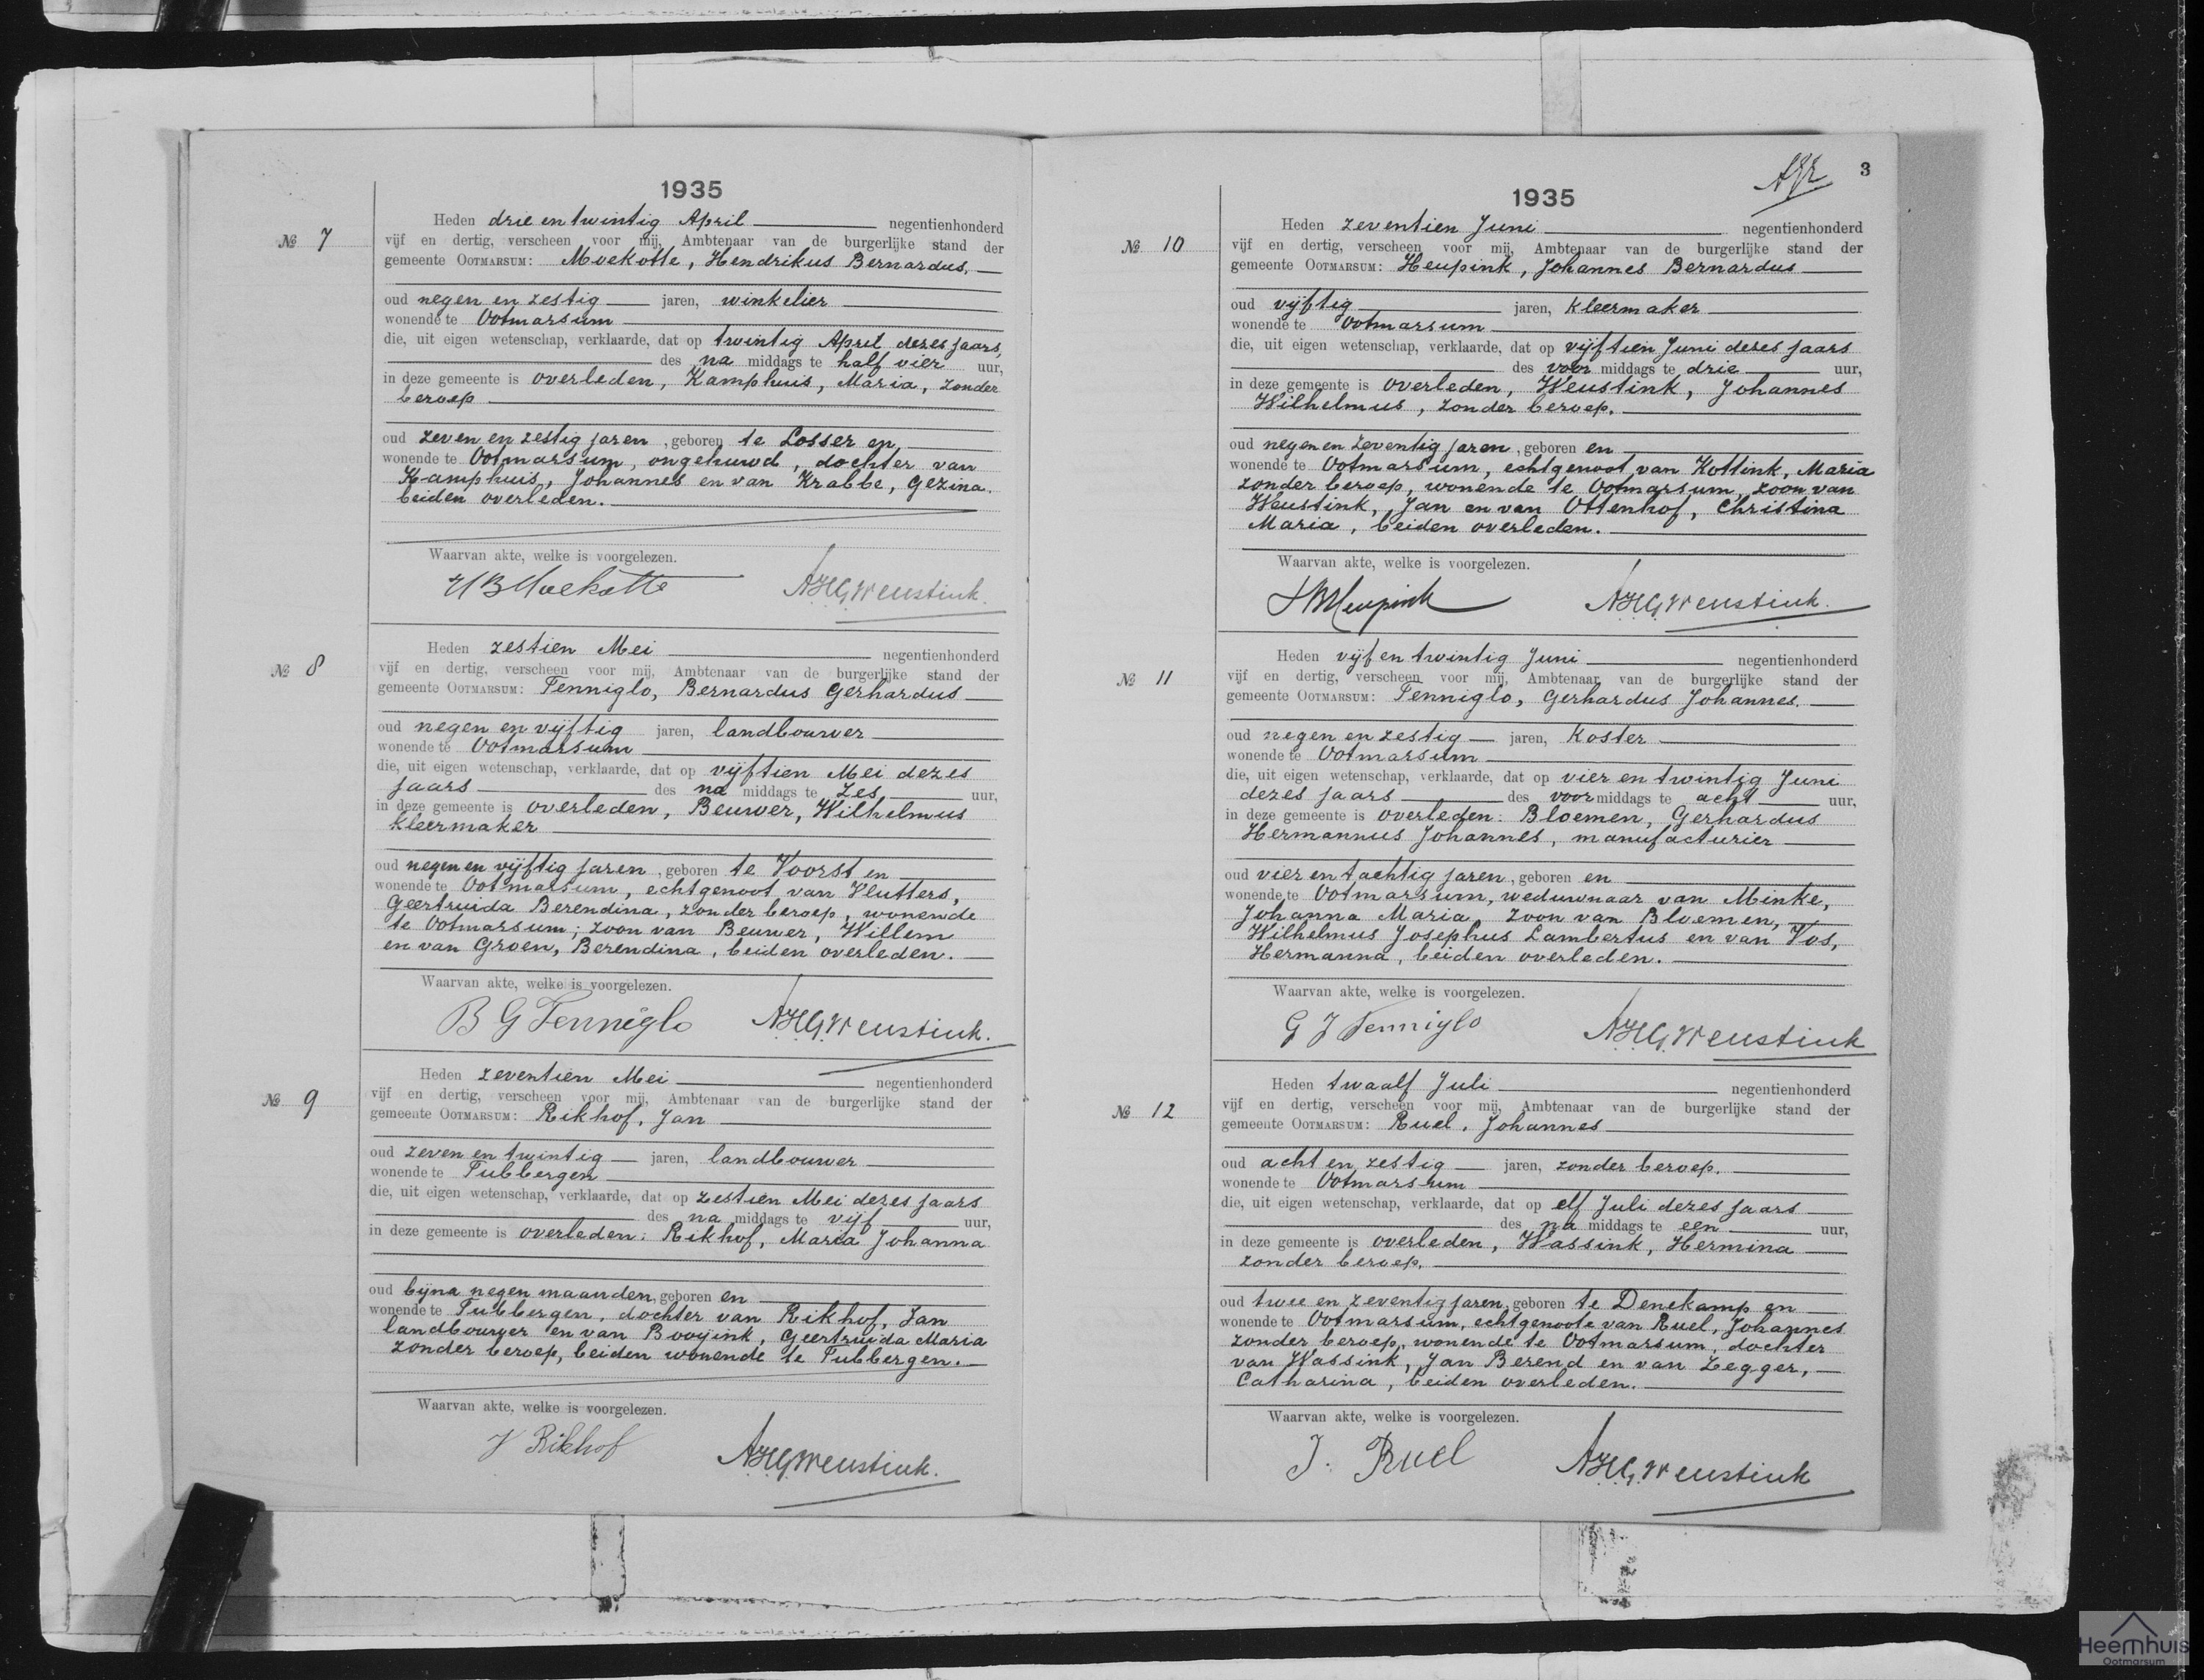 1935
Heden drie en twintig April negentienhonderd
№ 7
vijf en dertig, verscheen voor mij, Ambtenaar van de burgerlijke stand der
gemeente OOTMARSUM: Moekotte, Hendrikus Bernardus,
oud negen en zestig jaren, winkelier
wonende te Ootmarsum
die, uit eigen wetenschap, verklaarde, dat op twintig April dezes jaars,
des na middags te half vier uur,
in deze gemeente is overleden, Kamphuis, Maria, zonder
beroep
oud zeven en zestig jaren, geboren te Losser en
wonende te Ootmarsum, ongehuwd, dochter van
Kamphuis, Johannes en van Krabbe, Gezina.
beiden overleden.
Waarvan akte, welke is voorgelezen.
HBMoekotte AHGWeustink.
Heden zestien Mei negentienhonderd
№ 8
vijf en dertig, verscheen voor mij, Ambtenaar van de burgerlijke stand der
gemeente OOTMARSUM: Tenniglo, Bernardus Gerhardus
oud negen en vijftig jaren, landbouwer
wonende te Ootmarsum
die, uit eigen wetenschap, verklaarde, dat op vijftien Mei dezes
jaars des na middags te zes uur,
in deze gemeente is overleden, Beuwer, Wilhelmus
kleermaker
oud negen en vijftig jaren, geboren te Voorst en
wonende te Ootmarsum, echtgenoot van Vlutters,
Geertruida Berendina, zonder beroep, wonende
te Ootmarsum; zoon van Beuwer, Willem
en van Groen, Berendina, beiden overleden.
Waarvan akte, welke is voorgelezen.
B G Tenniglo AHGWeustink.
Heden zeventien Mei negentienhonderd
№ 9
vijf en dertig, verscheen voor mij, Ambtenaar van de burgerlijke stand der
gemeente OOTMARSUM: Rikhof, Jan
oud zeven en twintig jaren, landbouwer
wonende te Tubbergen
die, uit eigen wetenschap, verklaarde, dat op zestien Mei dezes jaars
des na middags te vijf uur,
in deze gemeente is overleden: Rikhof, Maria Johanna
oud bijna negen maanden, geboren en
wonende te Tubbergen, dochter van Rikhof, Jan
landbouwer en van Booyink, Geertruida Maria
zonder beroep, beiden wonende te Tubbergen.
Waarvan akte, welke is voorgelezen.
J Rikhof AHGWeustink.
3
1935
Heden zeventien Juni negentienhonderd
№ 10
vijf en dertig, verscheen voor mij, Ambtenaar van de burgerlijke stand der
gemeente OOTMARSUM: Heupink, Johannes Bernardus
oud vijftig jaren, kleermaker
wonende te Ootmarsum
die, uit eigen wetenschap, verklaarde, dat op vijftien Juni dezes jaars
des voor middags te drie uur,
in deze gemeente is overleden, Weustink, Johannes
Wilhelmus, zonder beroep.
oud negen en zeventig jaren, geboren en
wonende te Ootmarsum, echtgenoot van Kottink, Maria
zonder beroep, wonende te Ootmarsum, zoon van
Weustink, Jan en van Ottenhof, Christina
Maria, beiden overleden.
Waarvan akte, welke is voorgelezen.
JBHeupink AHGWeustink.
Heden vijf en twintig Juni negentienhonderd
№ 11
vijf en dertig, verscheen voor mij, Ambtenaar van de burgerlijke stand der
gemeente OOTMARSUM: Tenniglo, Gerhardus Johannes.
oud negen en zestig jaren, Koster
wonende te Ootmarsum
die, uit eigen wetenschap, verklaarde, dat op vier en twintig Juni
dezes jaars des voor middags te acht uur,
in deze gemeente is overleden: Bloemen, Gerhardus
Hermannus Johannes, manufacturier
oud vier en tachtig jaren, geboren en
wonende te Ootmarsum, weduwnaar van Minke,
Johanna Maria, zoon van Bloemen,
Wilhelmus Josephus Lambertus en van Vos,
Hermanna, beiden overleden.
Waarvan akte, welke is voorgelezen.
G J Tenniglo AHGWeustink
Heden twaalf Juli negentienhonderd
№ 12
vijf en dertig, verscheen voor mij, Ambtenaar van de burgerlijke stand der
gemeente OOTMARSUM: Ruel, Johannes
oud acht en zestig jaren, zonder beroep.
wonende te Ootmarsum
die, uit eigen wetenschap, verklaarde, dat op elf Juli dezes jaars
des na middags te een uur,
in deze gemeente is overleden, Wassink, Hermina
zonder beroep.
oud twee en zeventig jaren, geboren te Denekamp en
wonende te Ootmarsum, echtgenoote van Ruel, Johannes
zonder beroep, wonende te Ootmarsum, dochter
van Wassink, Jan Berend en van Zegger,
Catharina, beiden overleden.
Waarvan akte, welke is voorgelezen.
J. Ruel AHGWeustink
Heemhuis
Ootmarsum